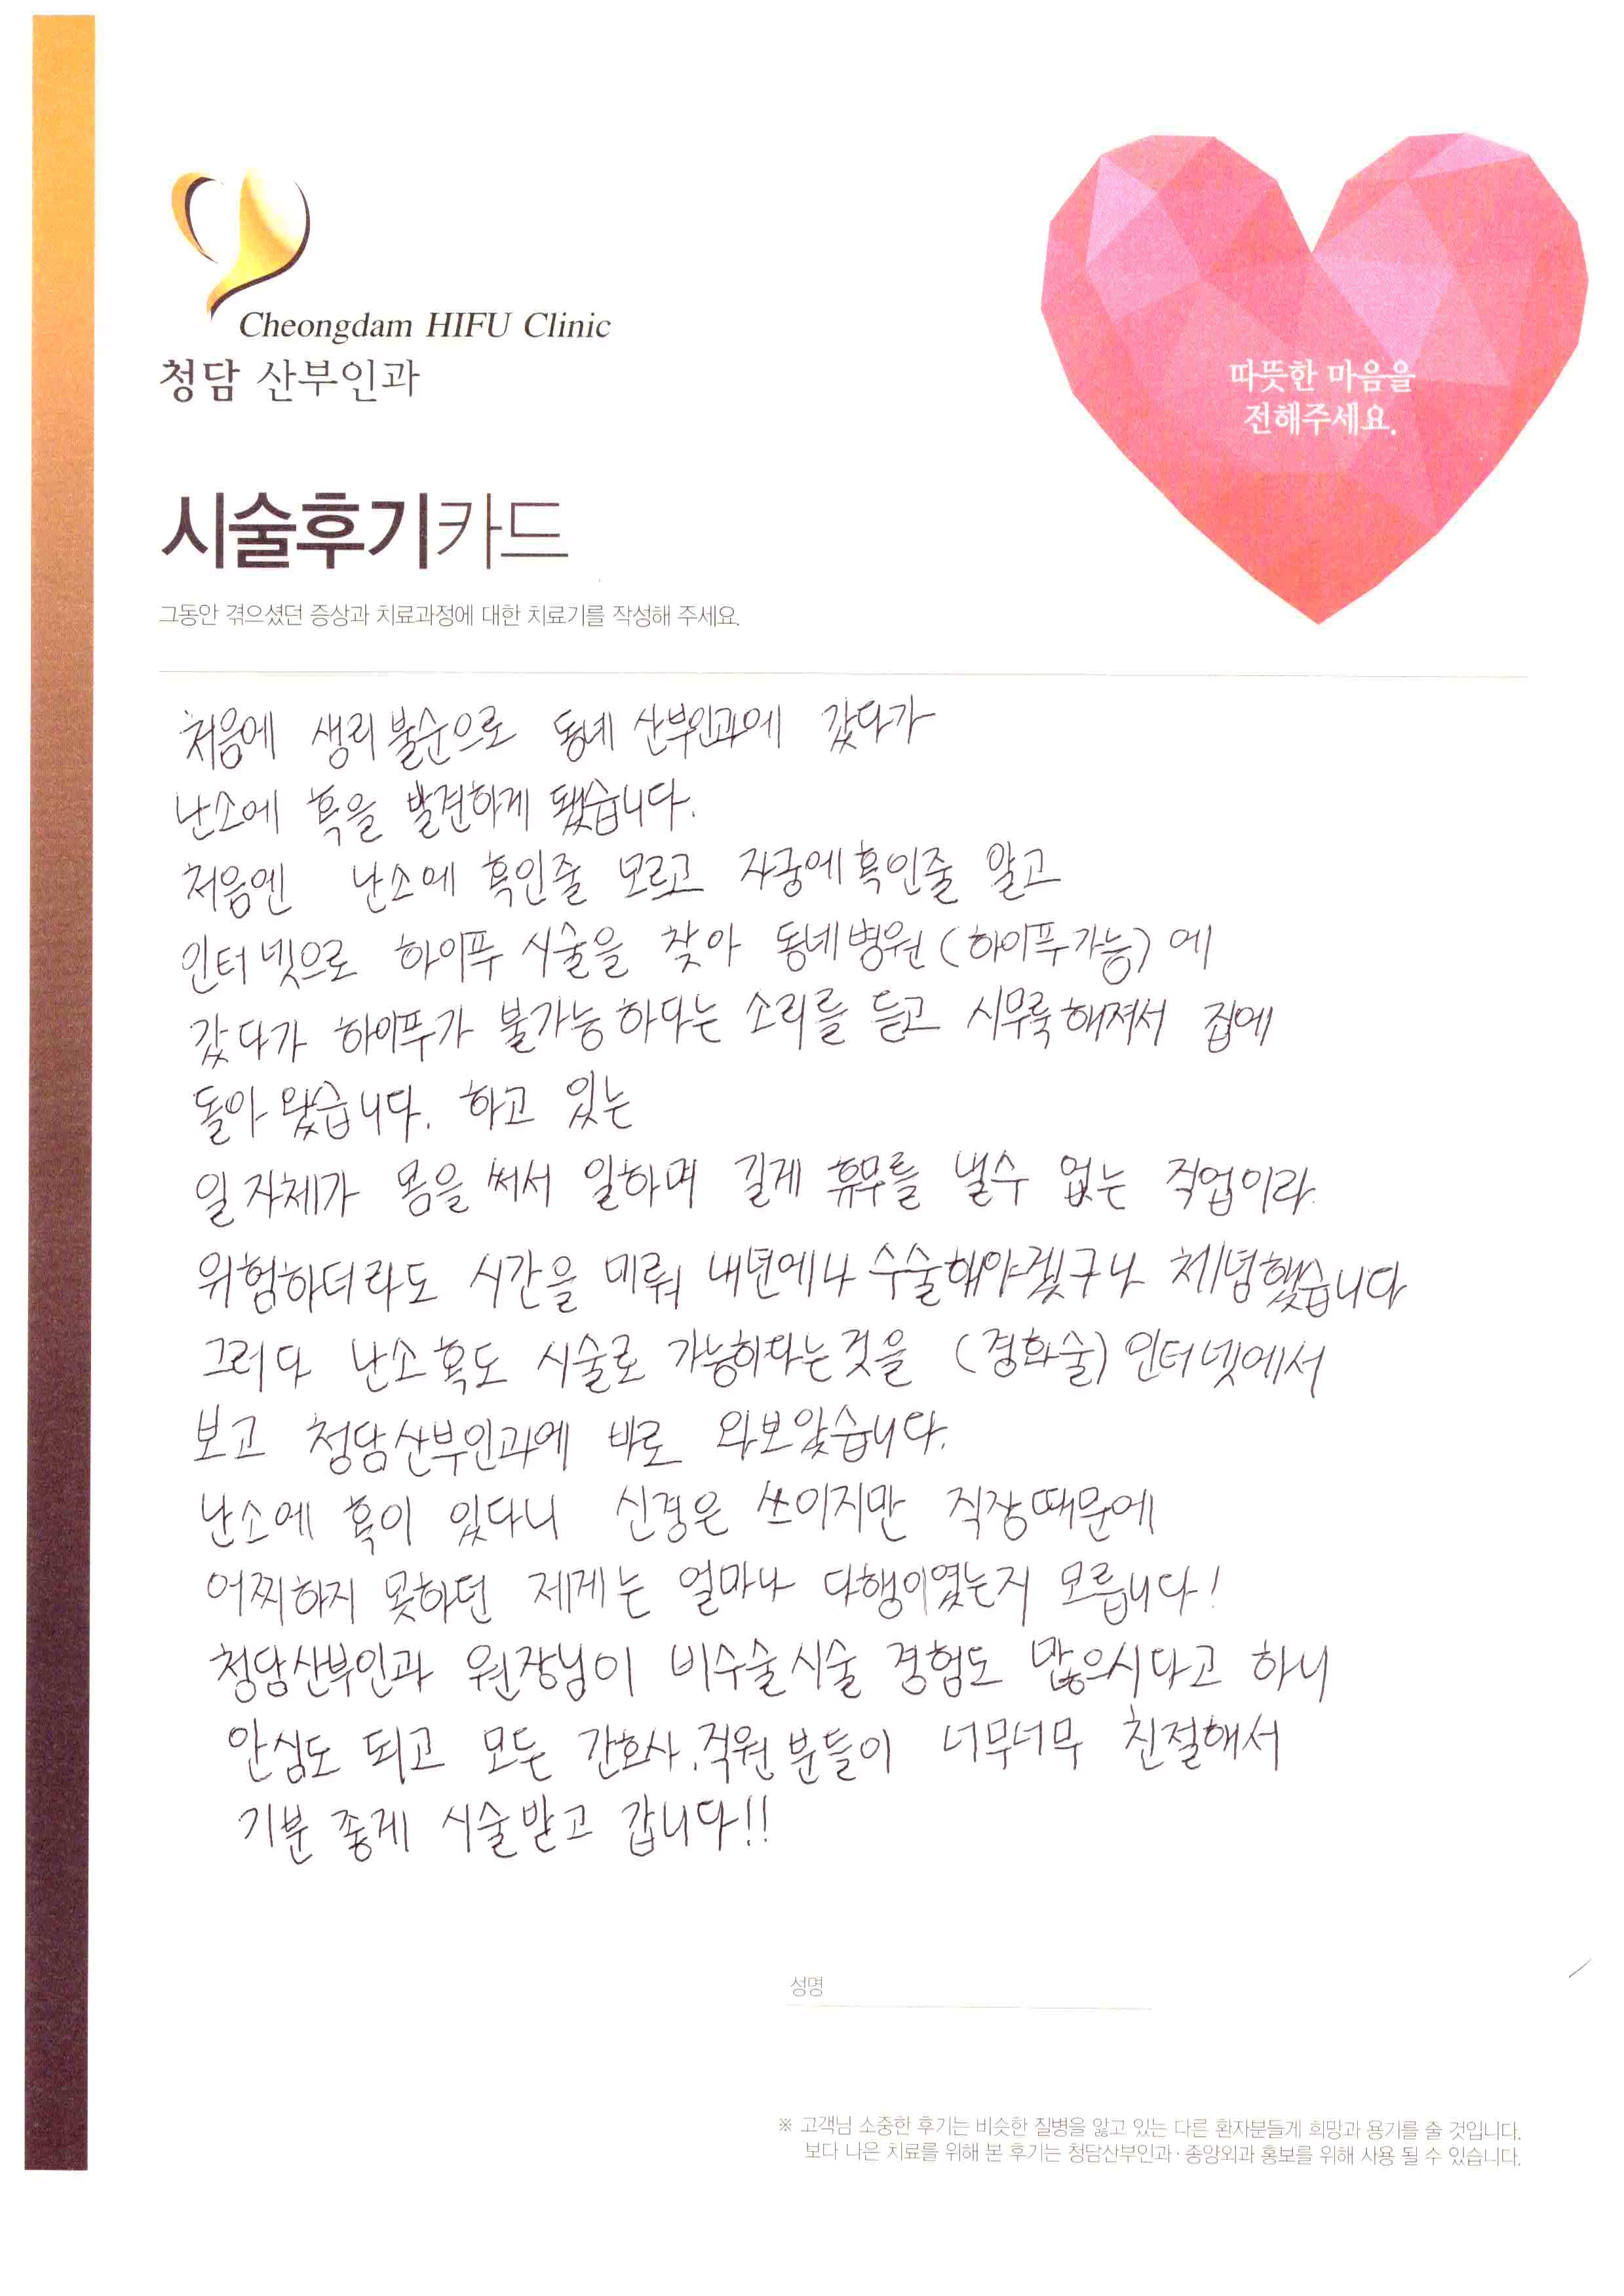 Cheongdam HIFU Clinic
청담 산부인과
따뜻한 마음을
전해주세요.
시술후기카드
그동안 겪으셨던 증상과 치료과정에 대한 치료기를 작성해 주세요.
처음에 생리불순으로 동네 산부인과에 갔다가
난소에 혹을 발견하게 됐습니다.
처음엔 난소에 혹인줄 모르고 자궁에 혹인줄 알고
인터넷으로 하이푸 시술을 찾아 동네병원(하이푸가능)에
갔다가 하이푸가 불가능하다는 소리를 듣고 시무룩해져서 집에
돌아왔습니다. 하고 있는
일 자체가 몸을 써서 일하며 길게 휴무를 낼수 없는 직업이라
위험하더라도 시간을 미뤄 내년에나 수술해야겠구나 체념했습니다
그러다 난소혹도 시술로 가능하다는것을 (경화술) 인터넷에서
보고 청담산부인과에 바로 와보았습니다.
난소에 혹이 있다니 신경은 쓰이지만 직장때문에
어찌하지 못하던 제게는 얼마나 다행이였는지 모릅니다!
청담산부인과 원장님이 비수술시술 경험도 많으시다고 하니
안심도 되고 모든 간호사,직원분들이 너무너무 친절해서
기분 좋게 시술받고 갑니다!!
성명
※ 고객님 소중한 후기는 비슷한 질병을 앓고 있는 다른 환자분들게 희망과 용기를 줄 것입니다.
보다 나은 치료를 위해 본 후기는 청담산부인과·종양외과 홍보를 위해 사용 될 수 있습니다.